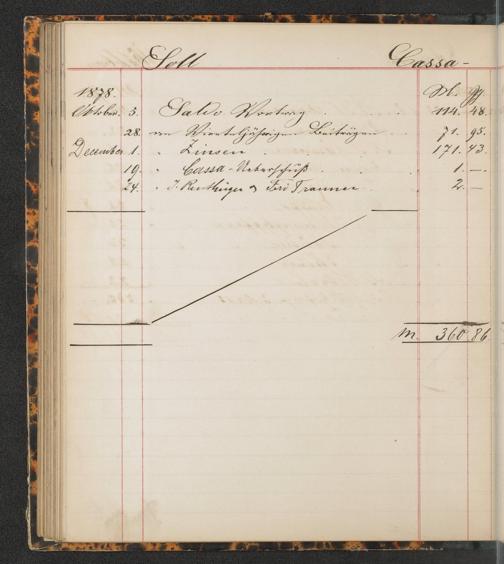 Soll Cassa-
1878. M. Pf.
Oktober. 3. Saldo Vortrag 114. 48.
28. an Vierteljährigen Beiträgen 71. 95.
December 1. " Zinsen 171. 43.
19. " Cassa-Ueberschuß 1. —.
24. " J. & 2. —.
M. 360 86.